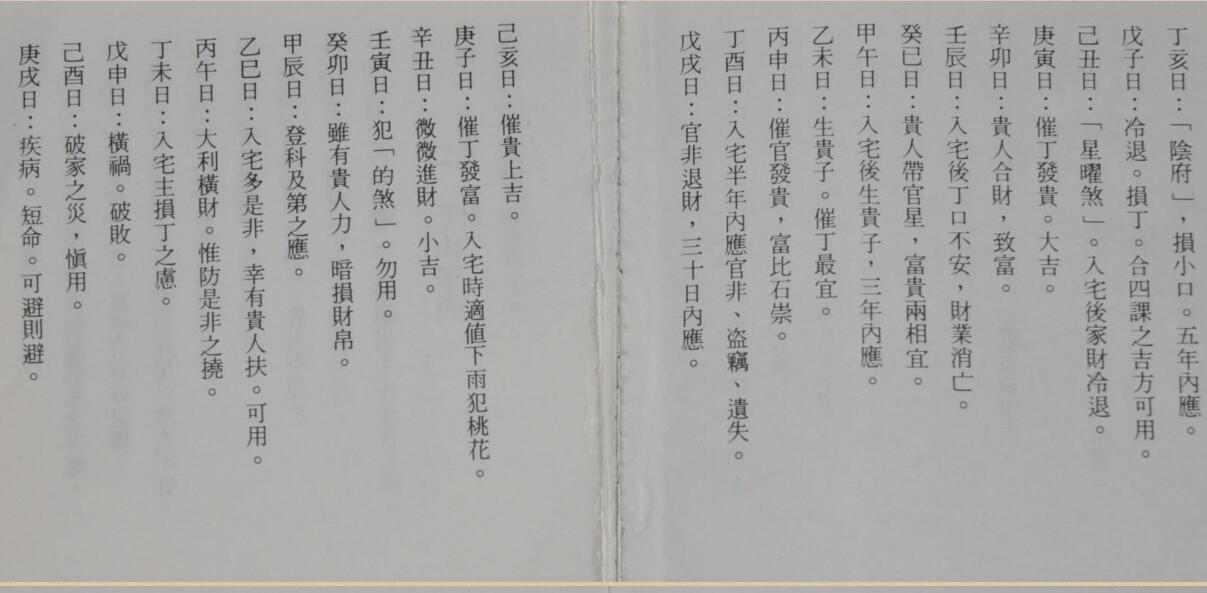 丁亥日：「陰府」，損小口。五年內應。
戊子日：冷退。損丁。合四課之吉方可用。
己丑日：「星曜煞」。入宅後家財冷退。
庚寅日：催丁發貴。大吉。
辛卯日：貴人合財，致富。
壬辰日：入宅後丁口不安，財業消亡。
癸巳日：貴人帶官星，富貴兩相宜。
甲午日：入宅後生貴子，三年內應。
乙未日：生貴子。催丁最宜。
丙申日：催官發貴，富比石崇。
丁酉日：入宅半年內應官非、盜竊、遺失。
戊戌日：官非退財，三十日內應。
己亥日：催貴上吉。
庚子日：催丁發富。入宅時適值下雨犯桃花。
辛丑日：微微進財。小吉。
壬寅日：犯「的煞」。勿用。
癸卯日：雖有貴人力，暗損財帛。
甲辰日：登科及第之應。
乙巳日：入宅多是非，幸有貴人扶。可用。
丙午日：大利橫財。惟防是非之撓。
丁未日：入宅主損丁之慮。
戊申日：橫禍。破敗。
己酉日：破家之災，慎用。
庚戌日：疾病。短命。可避則避。